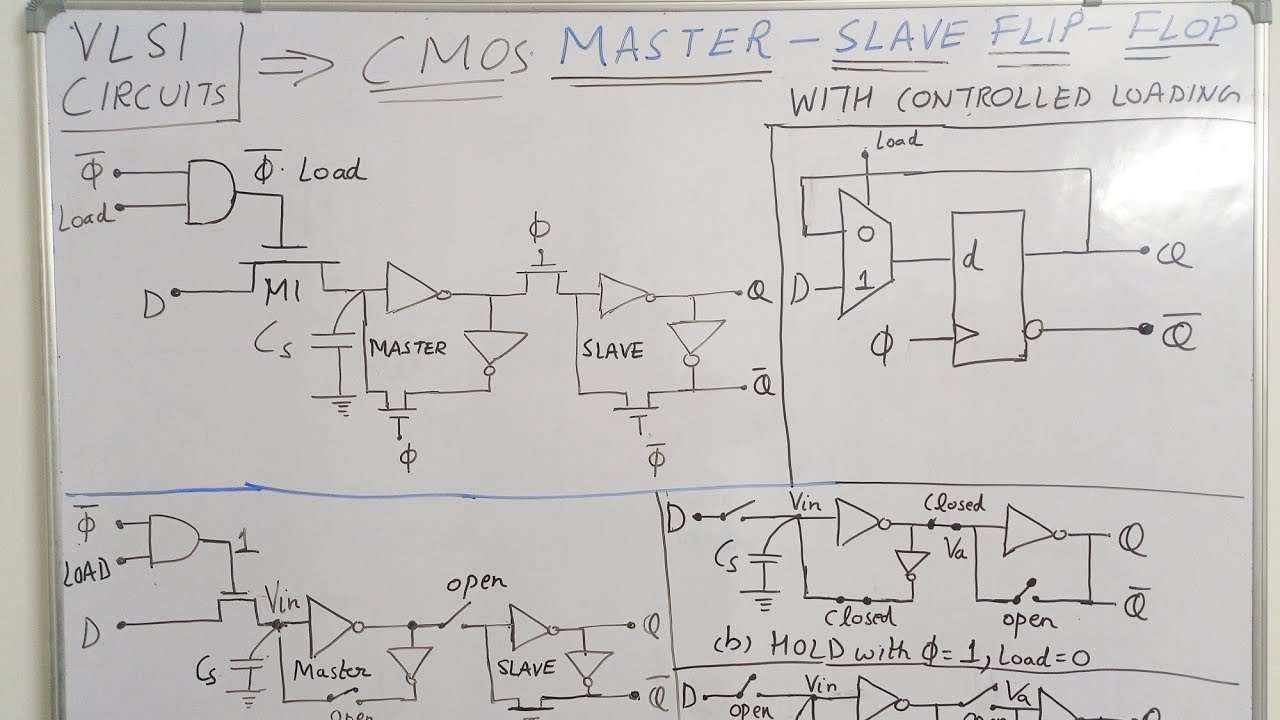 VLSI
CIRCUITS
⇒ CMOS MASTER - SLAVE FLIP - FLOP
WITH CONTROLLED LOADING
Φ̅
Load
Φ̅. Load
D
M1
Cs
MASTER
Φ
Φ
SLAVE
Q
Q̅
Φ̅
Load
0
1
D
d
Φ
Q
Q̅
Φ̅
LOAD
1
D
Vin
Cs
Master
open
open
SLAVE
Q
Q̅
D
Vin
Closed
Cs
Va
Closed
open
Q
Q̅
(b) HOLD with Φ=1, Load=0
D
open
Vin
open
Va
Q